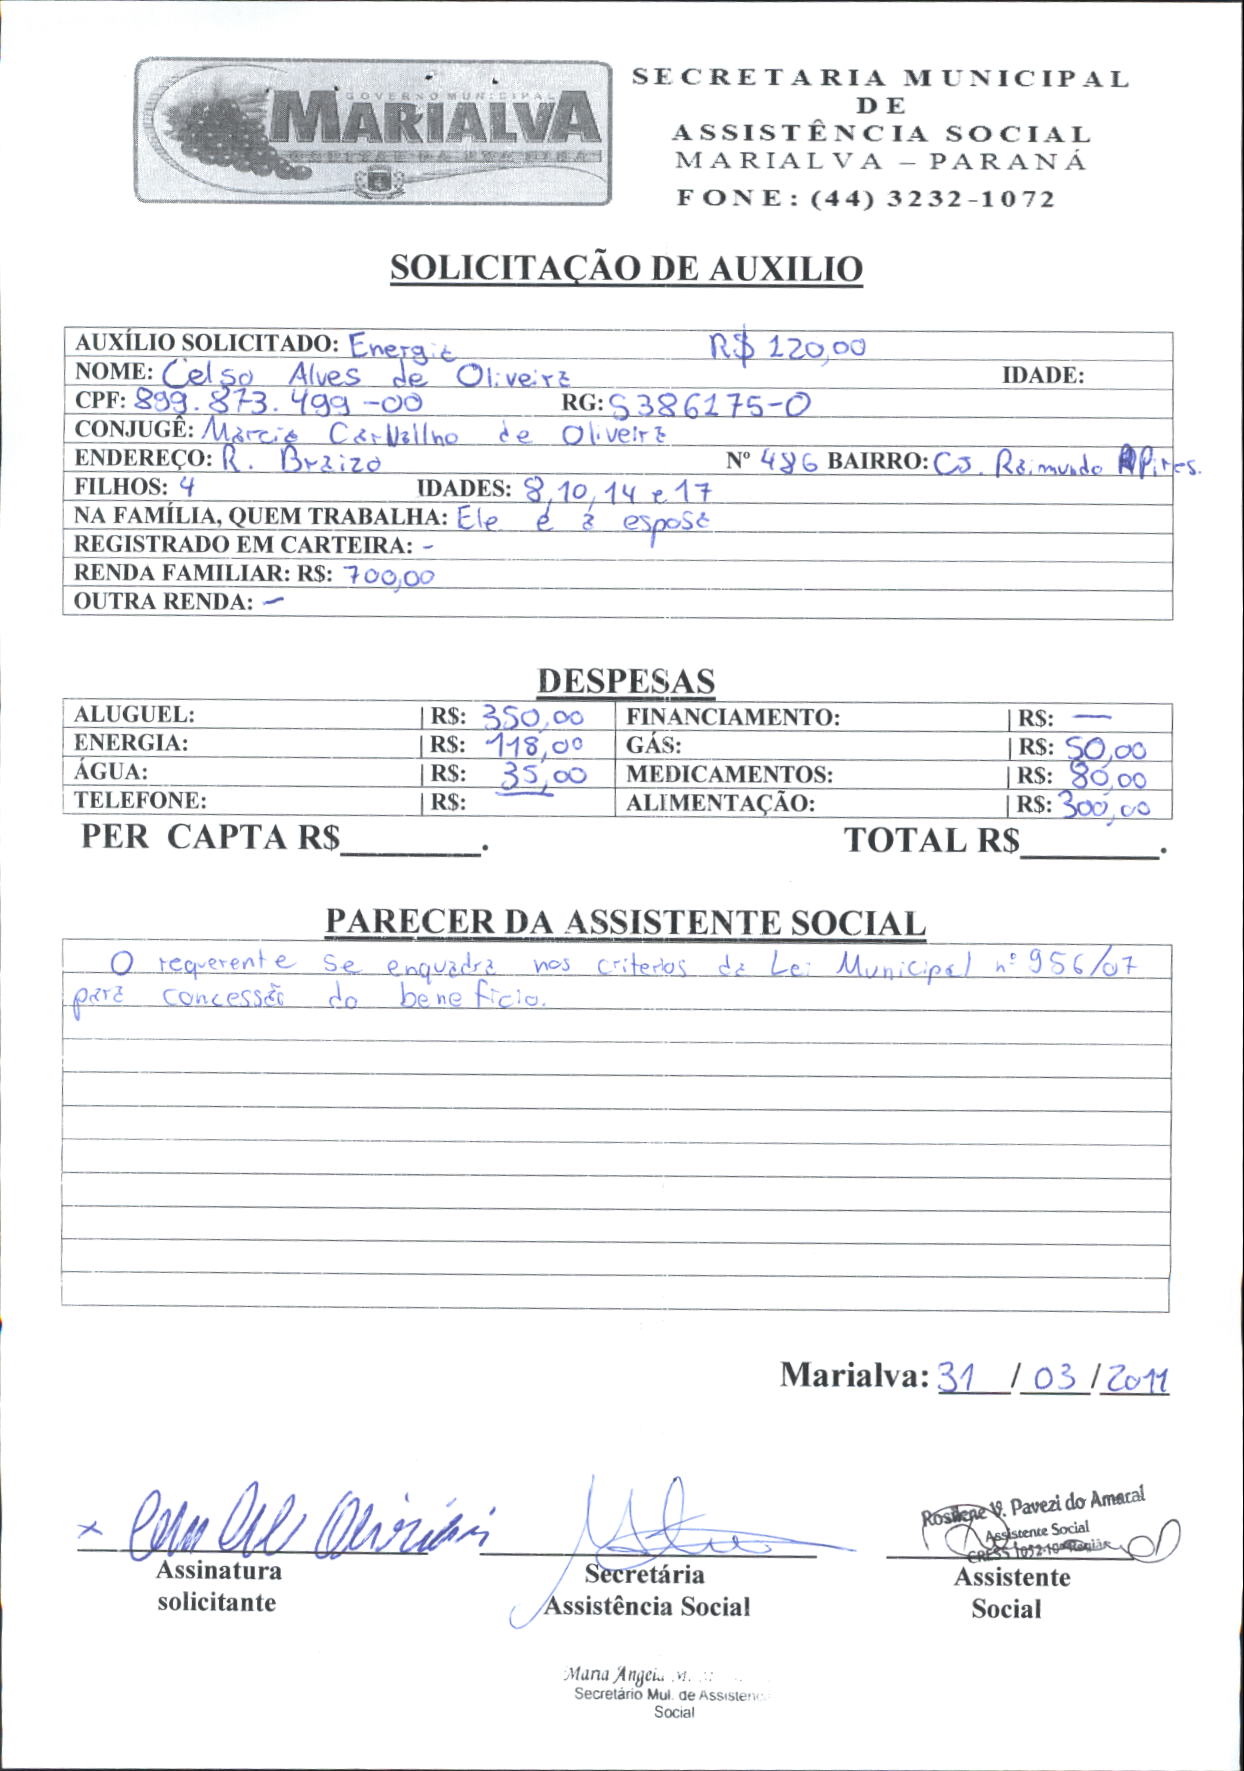 GOVERNO MUNICIPAL
MARIALVA
SECRETARIA MUNICIPAL
DE
ASSISTÊNCIA SOCIAL
MARIALVA – PARANÁ
FONE: (44) 3232-1072
SOLICITAÇÃO DE AUXILIO
AUXÍLIO SOLICITADO: Energia R$ 120,00
NOME: Celso Alves de Oliveira IDADE:
CPF: 899.873.499-00 RG: 5386175-0
CONJUGÊ: Marcia Carvallho de Oliveira
ENDEREÇO: R. Nº 486 BAIRRO: CJ. Raimundo Pires.
FILHOS: 4 IDADES: 8, 10, 14 e 17
NA FAMÍLIA, QUEM TRABALHA: Ele e a esposa
REGISTRADO EM CARTEIRA: -
RENDA FAMILIAR: R$: 700,00
OUTRA RENDA: –
DESPESAS
ALUGUEL: R$: 350,00 FINANCIAMENTO: R$: —
ENERGIA: R$: 118,00 GÁS: R$: 50,00
ÁGUA: R$: 35,00 MEDICAMENTOS: R$: 80,00
TELEFONE: R$: ALIMENTAÇÃO: R$: 300,00
PER CAPTA R$________. TOTAL R$________.
PARECER DA ASSISTENTE SOCIAL
O requerente se enquadra nos criterios da Lei Municipal nº 956/07
para concessão do benefício.
Marialva: 31 / 03 / 2011
Rosilene V. Pavezi do Amaral
Assistente Social
CRESS 1052-10ª Região
Assinatura Secretária Assistente
solicitante Assistência Social Social
Maria Angela M.
Secretário Mul. de Assistência
Social